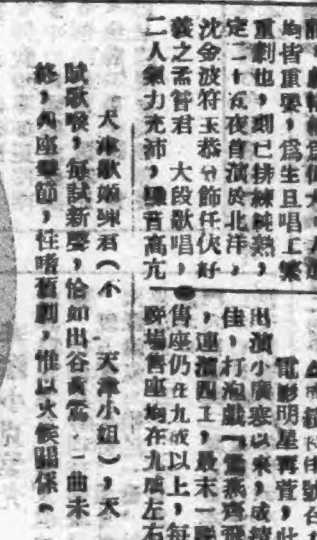 劇情極爲偉大
均皆重要，爲生旦唱工繁
重劇也，刻已排練純熟，
定二十五夜首演於北洋，
沈金波符玉恭分飾任伙好
義之孟簪君　大段歌唱，
二人氣力充沛，嗓音高亢
電影明星再萱，此
出演小廣寒以來，成績
佳，打泡戲「鶯燕齊飛
，連演四工，最末一
售座仍在九成以上，每
場售座均在九成左右
天津歌姬　君（不　天津小姐），天
賦歌喉，每試新聲，恰如出谷黃鶯，一曲未
終，四座擊節，性嗜舊劇，惟以火候關係。